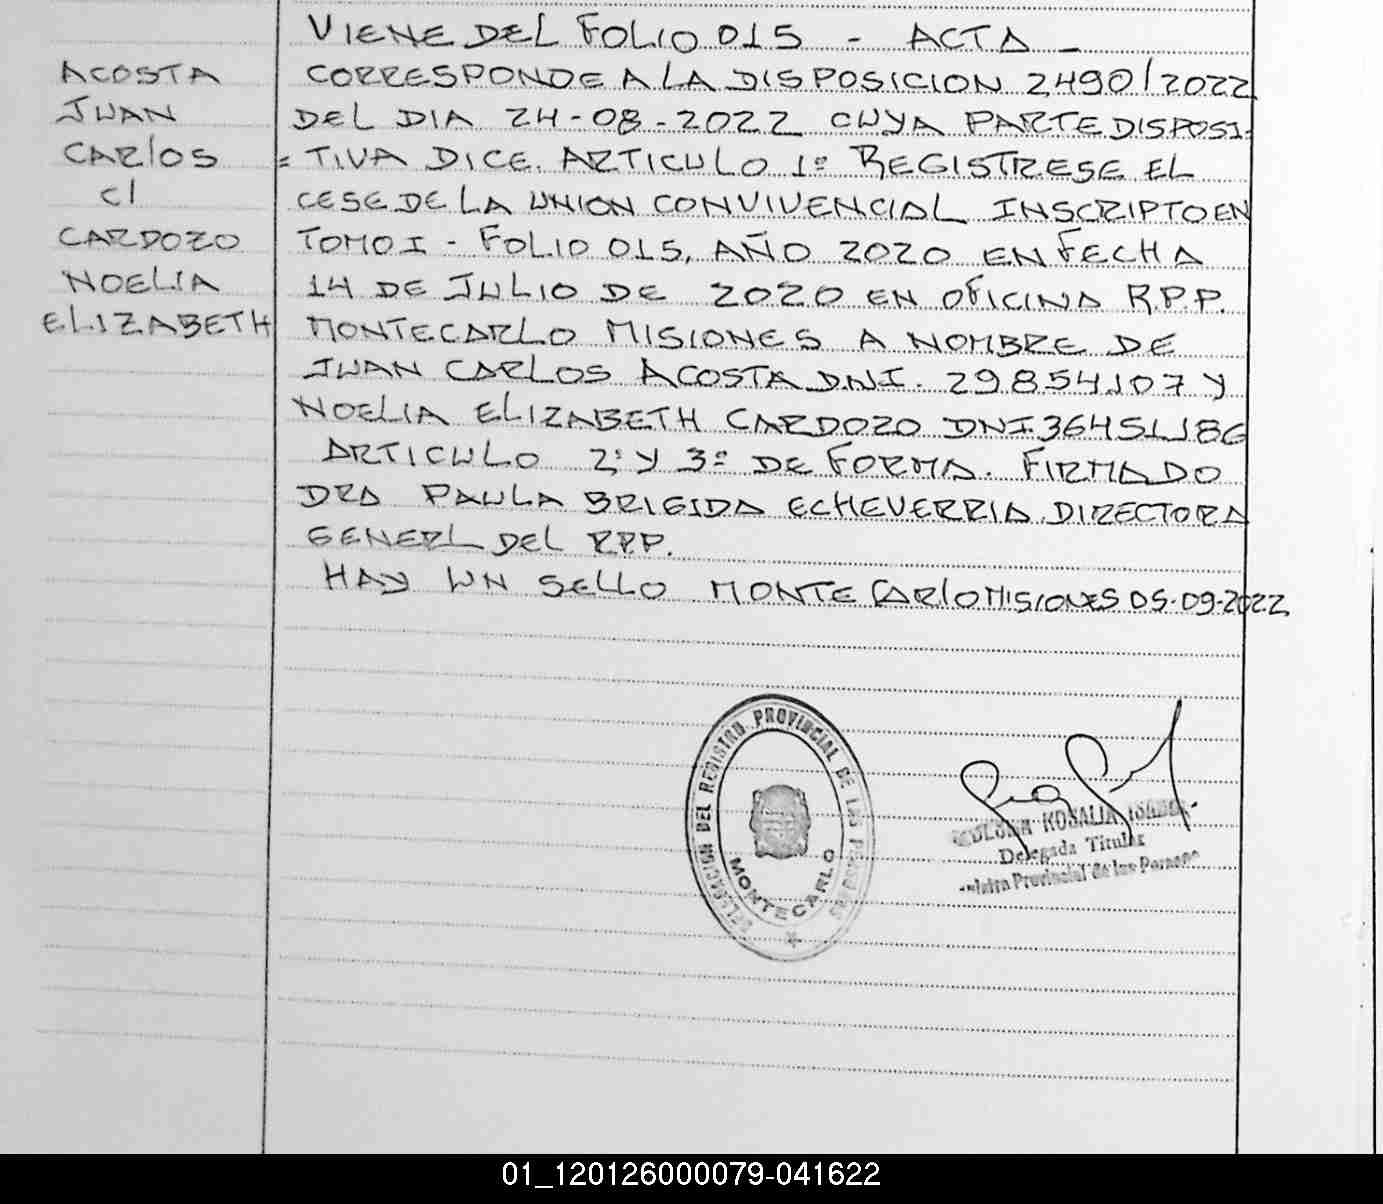 VIENE DEL FOLIO 015 - ACTA -
ACOSTA
JUAN
CARLOS
C/
CARDOZO
NOELIA
ELIZABETH
CORRESPONDE A LA DISPOSICION 2490/2022
DEL DIA 24-08-2022 CUYA PARTE DISPOSI-
= TIVA DICE. ARTICULO 1º REGISTRESE EL
CESE DE LA UNION CONVIVENCIAL INSCRIPTO EN
TOMO I - FOLIO 015, AÑO 2020 EN FECHA
14 DE JULIO DE 2020 EN OFICINA R.P.P.
MONTECARLO MISIONES A NOMBRE DE
JUAN CARLOS ACOSTA DNI. 29.854.107 Y
NOELIA ELIZABETH CARDOZO DNI 36451186
ARTICULO 2º Y 3º DE FORMA. FIRMADO
DRA PAULA BRIGIDA ECHEVERRIA DIRECTORA
GENERL DEL RPP.
HAY UN SELLO MONTECARLO MISIONES 05-09-2022
DELEGACION DEL REGISTRO PROVINCIAL DE LAS PERSONAS
MONTECARLO
ROSALIA ISABEL
Delegada Titular
Provincial de las Personas
01_120126000079-041622